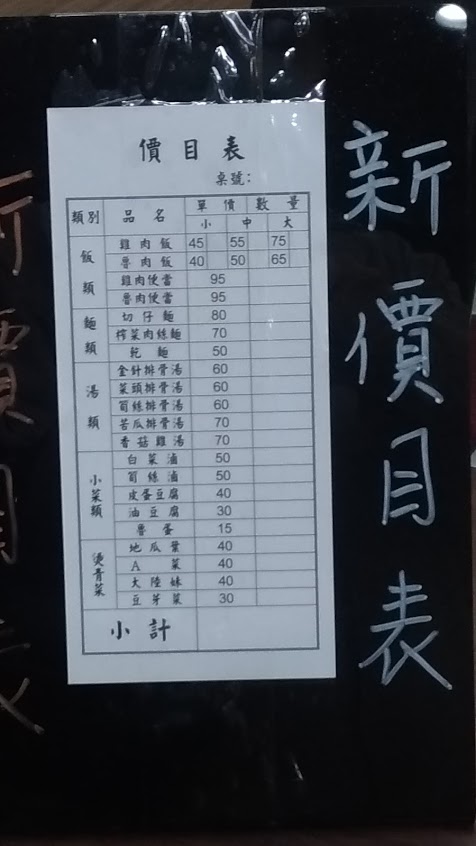 價目表
桌號:
類別 品名 單價 數量
小 中 大
飯類
雞肉飯 45 55 75
魯肉飯 40 50 65
雞肉便當 95
魯肉便當 95
麵類
切仔麵 80
榨菜肉絲麵 70
乾麵 50
湯類
金針排骨湯 60
菜頭排骨湯 60
筍絲排骨湯 60
苦瓜排骨湯 70
香菇雞湯 70
小菜類
白菜滷 50
筍絲滷 50
皮蛋豆腐 40
油豆腐 30
魯蛋 15
燙青菜
地瓜葉 40
A菜 40
大陸妹 40
豆芽菜 30
小計
新價目表